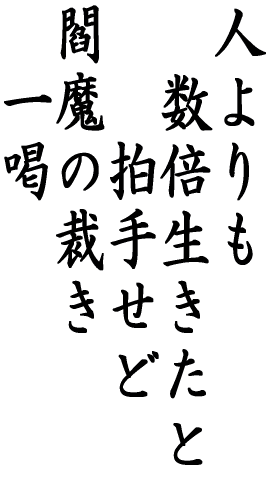 人よりも
数倍生きたと
拍手せど
閻魔の裁き
一喝